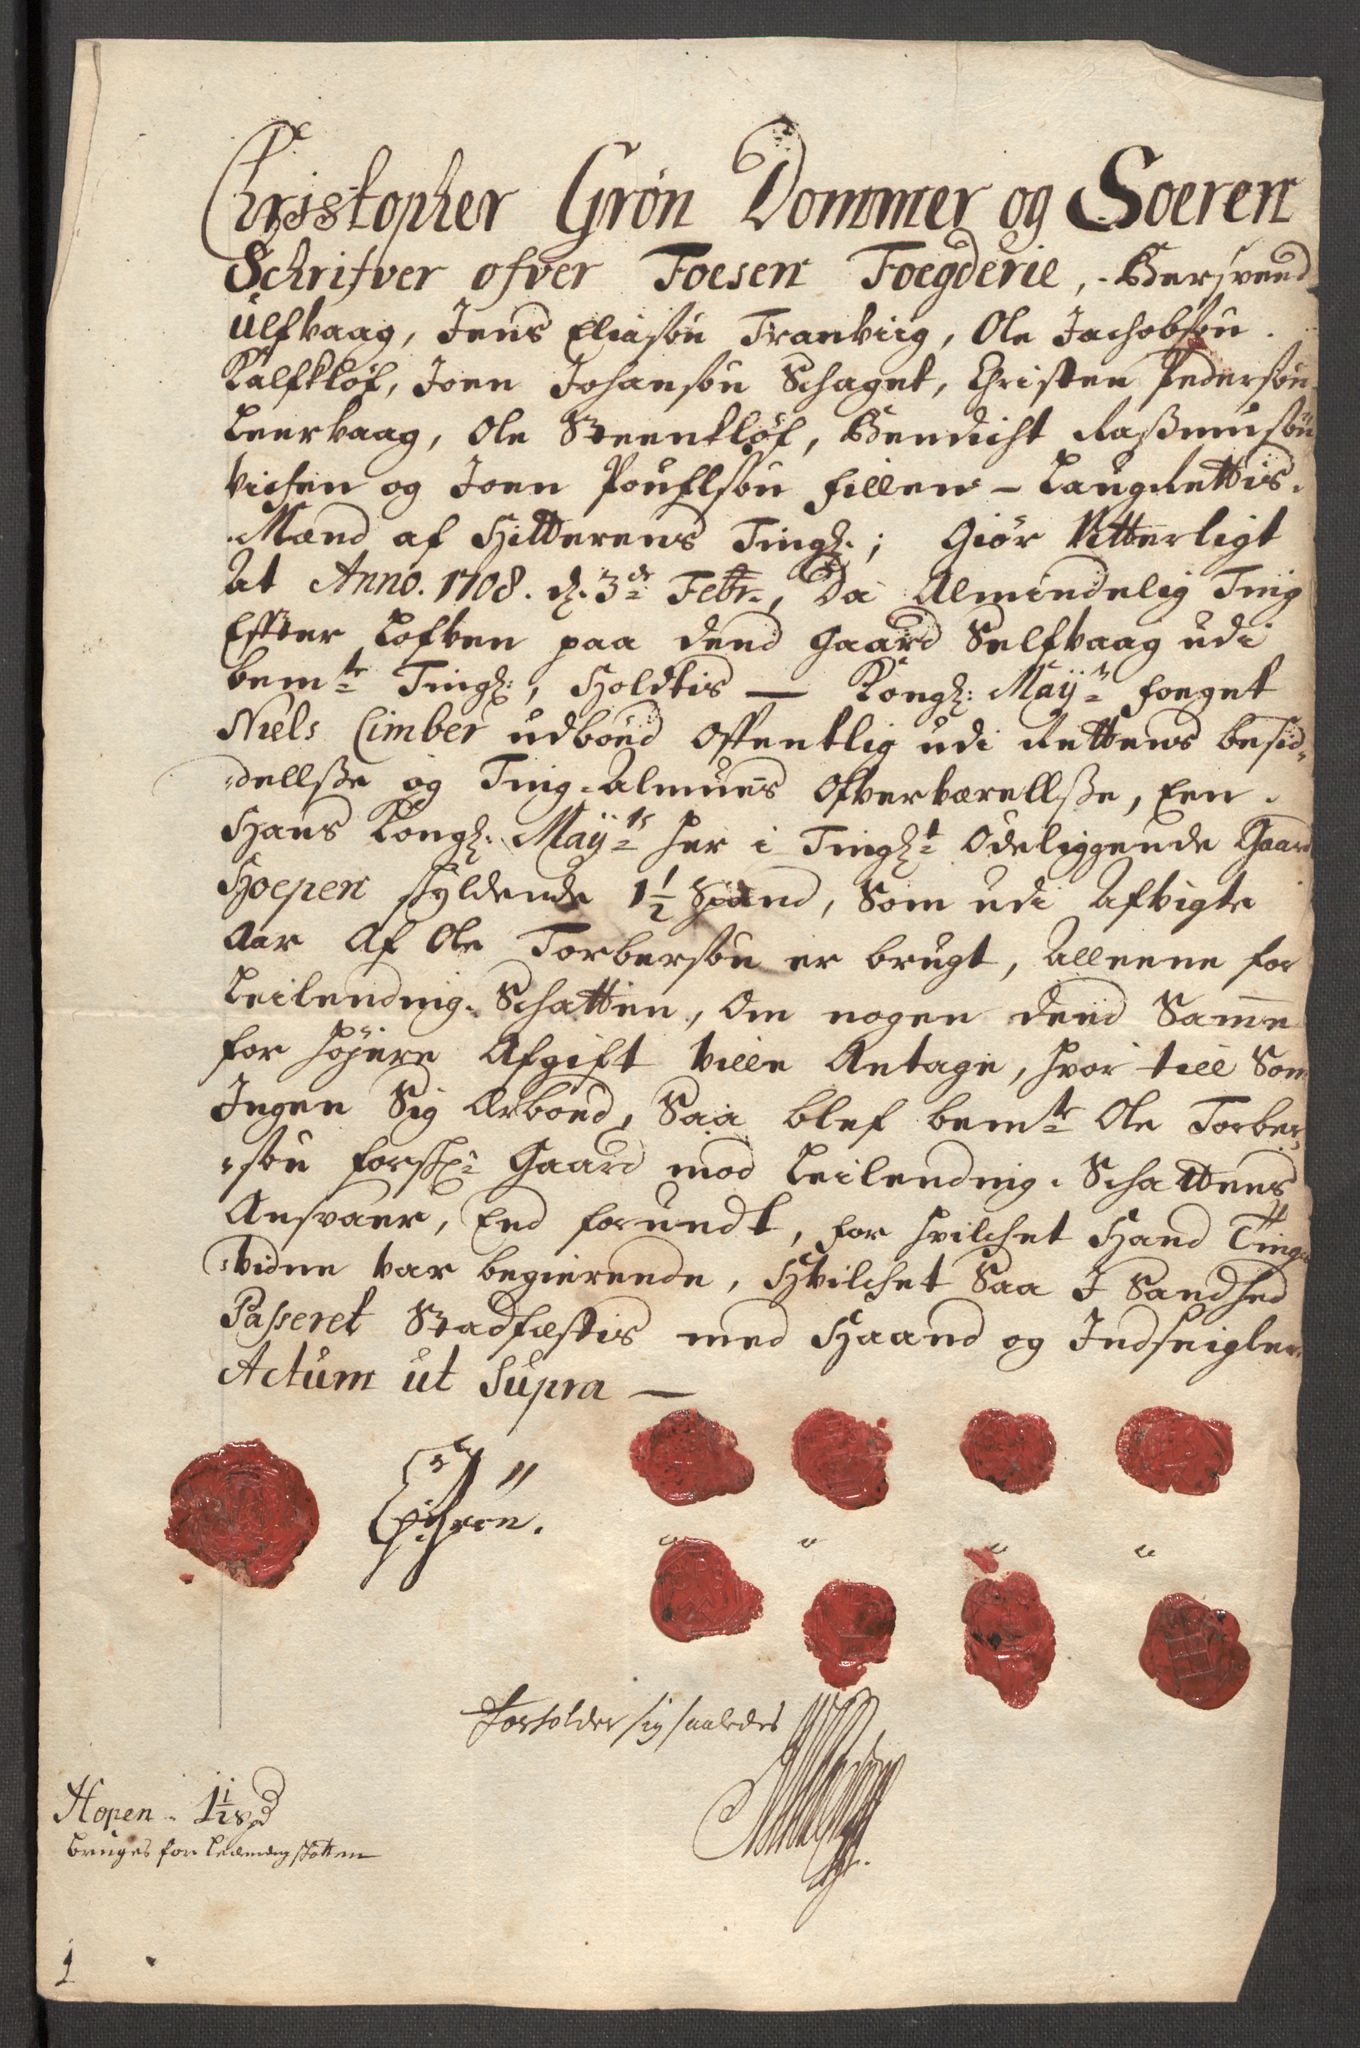 Christopher Grøn Dommer og Soeren
Schrifver ofver Foesen Foegderie, Bersvend
Ulfvaag, Jens Eliasøn Tranviig, Ole Jachobsøn
Kalfkløf, Joen Johansøn Schaget, Christen Pedersøn
Leervaag, Ole Steenkløf, Bendicht Rasmusøn
vichen og Joen Poufvelsøn Fillen - Laugrettis
Mænd af Hitterens Tingh.; Giør Vitterligt
At Anno. 1708. d. 3de Febr., Da Almindelig Ting
Efter Lofven paa dend Gaard Selfvaag udi
bemte Tingh:, Holdtis — Kongh: Mayts foeget
Niels Cimber udbøed Offentlig udi Rettens besid-
dellsse og Ting-Almues Ofverværellsse, Een
Hans Kongh: Mayts her i Tinght Ødeliggende Gaard
Hoepen skyldende 1 1/2 Spand, Som udi Afvigte
Aar Af Ole Torbersøn er brugt, Alleene for
Leilending-Schatten, Om nogen dend Samme
for høyere Afgift ville Antage, hvor till Som
Ingen Sig Erbød, Saa blef bemte Ole Torber-
søn forschr: Gaard mod Leilending-Schattens
Ansvaer, End forundt, for hvilchet Hand Tings-
vidne var begierende, Hvilchet Saa I Sandhed
Passeret Stadfæstis med Haand og Indseigler
Actum ut Supra —
Grøn.
Forholder sig saaledes
Hopen - 1 1/2 spd
bruges for Leilending skatten
1